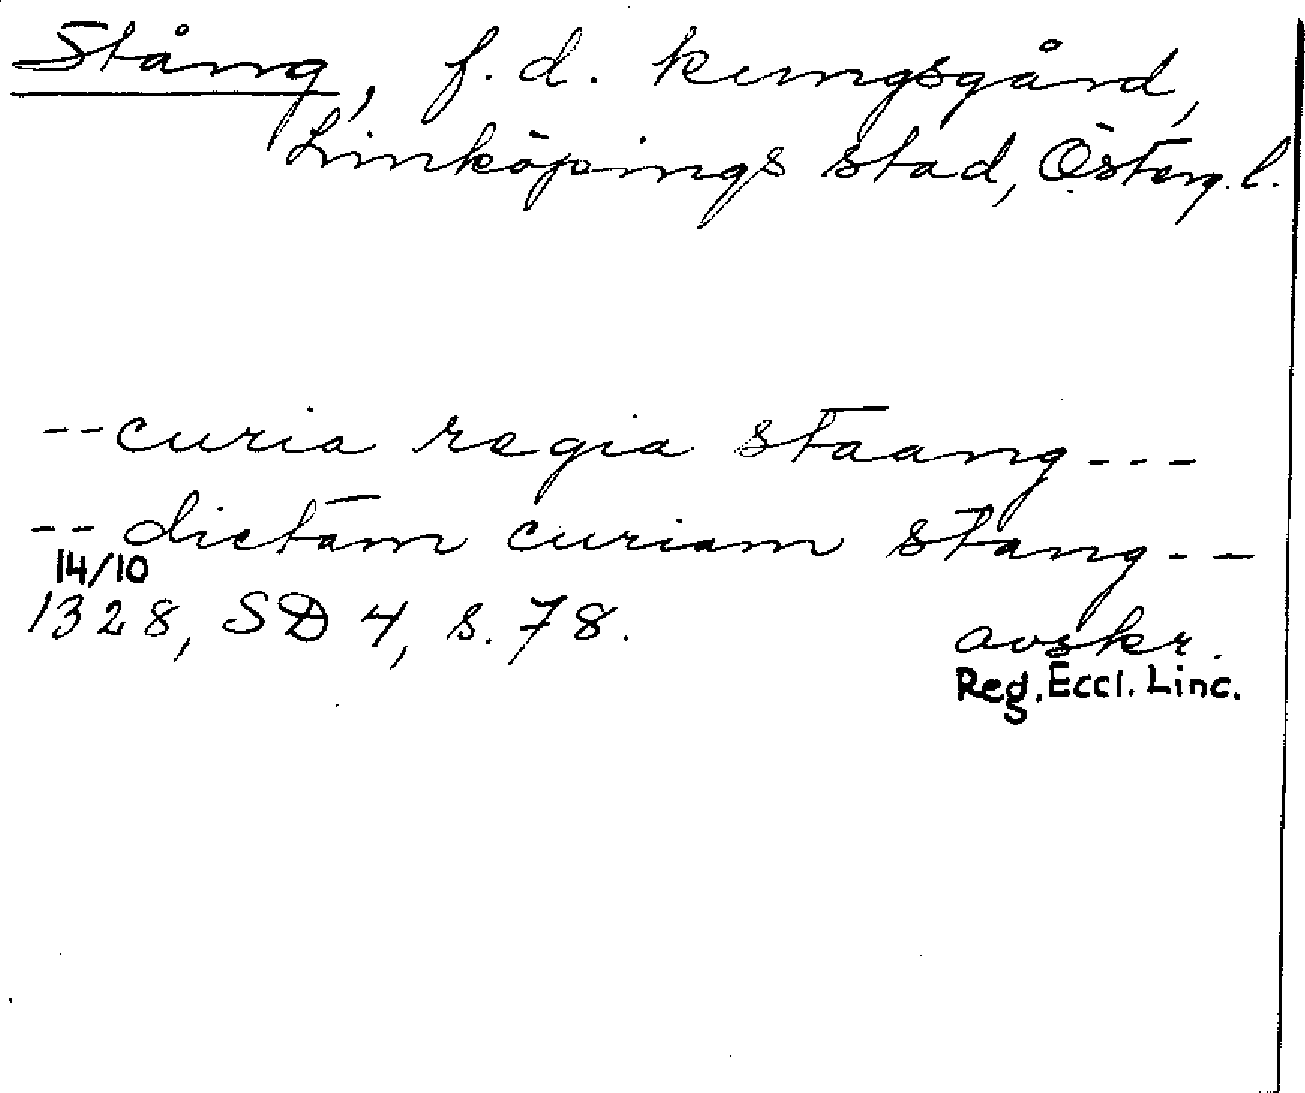 Stång, f.d. kungsgård,
Linköpings stad, Österg. l.
-- curia regia staang ---
-- dictam curiam stang --
14/10
1328, SD 4, s. 78.
avskr.
Reg. Eccl. Linc.